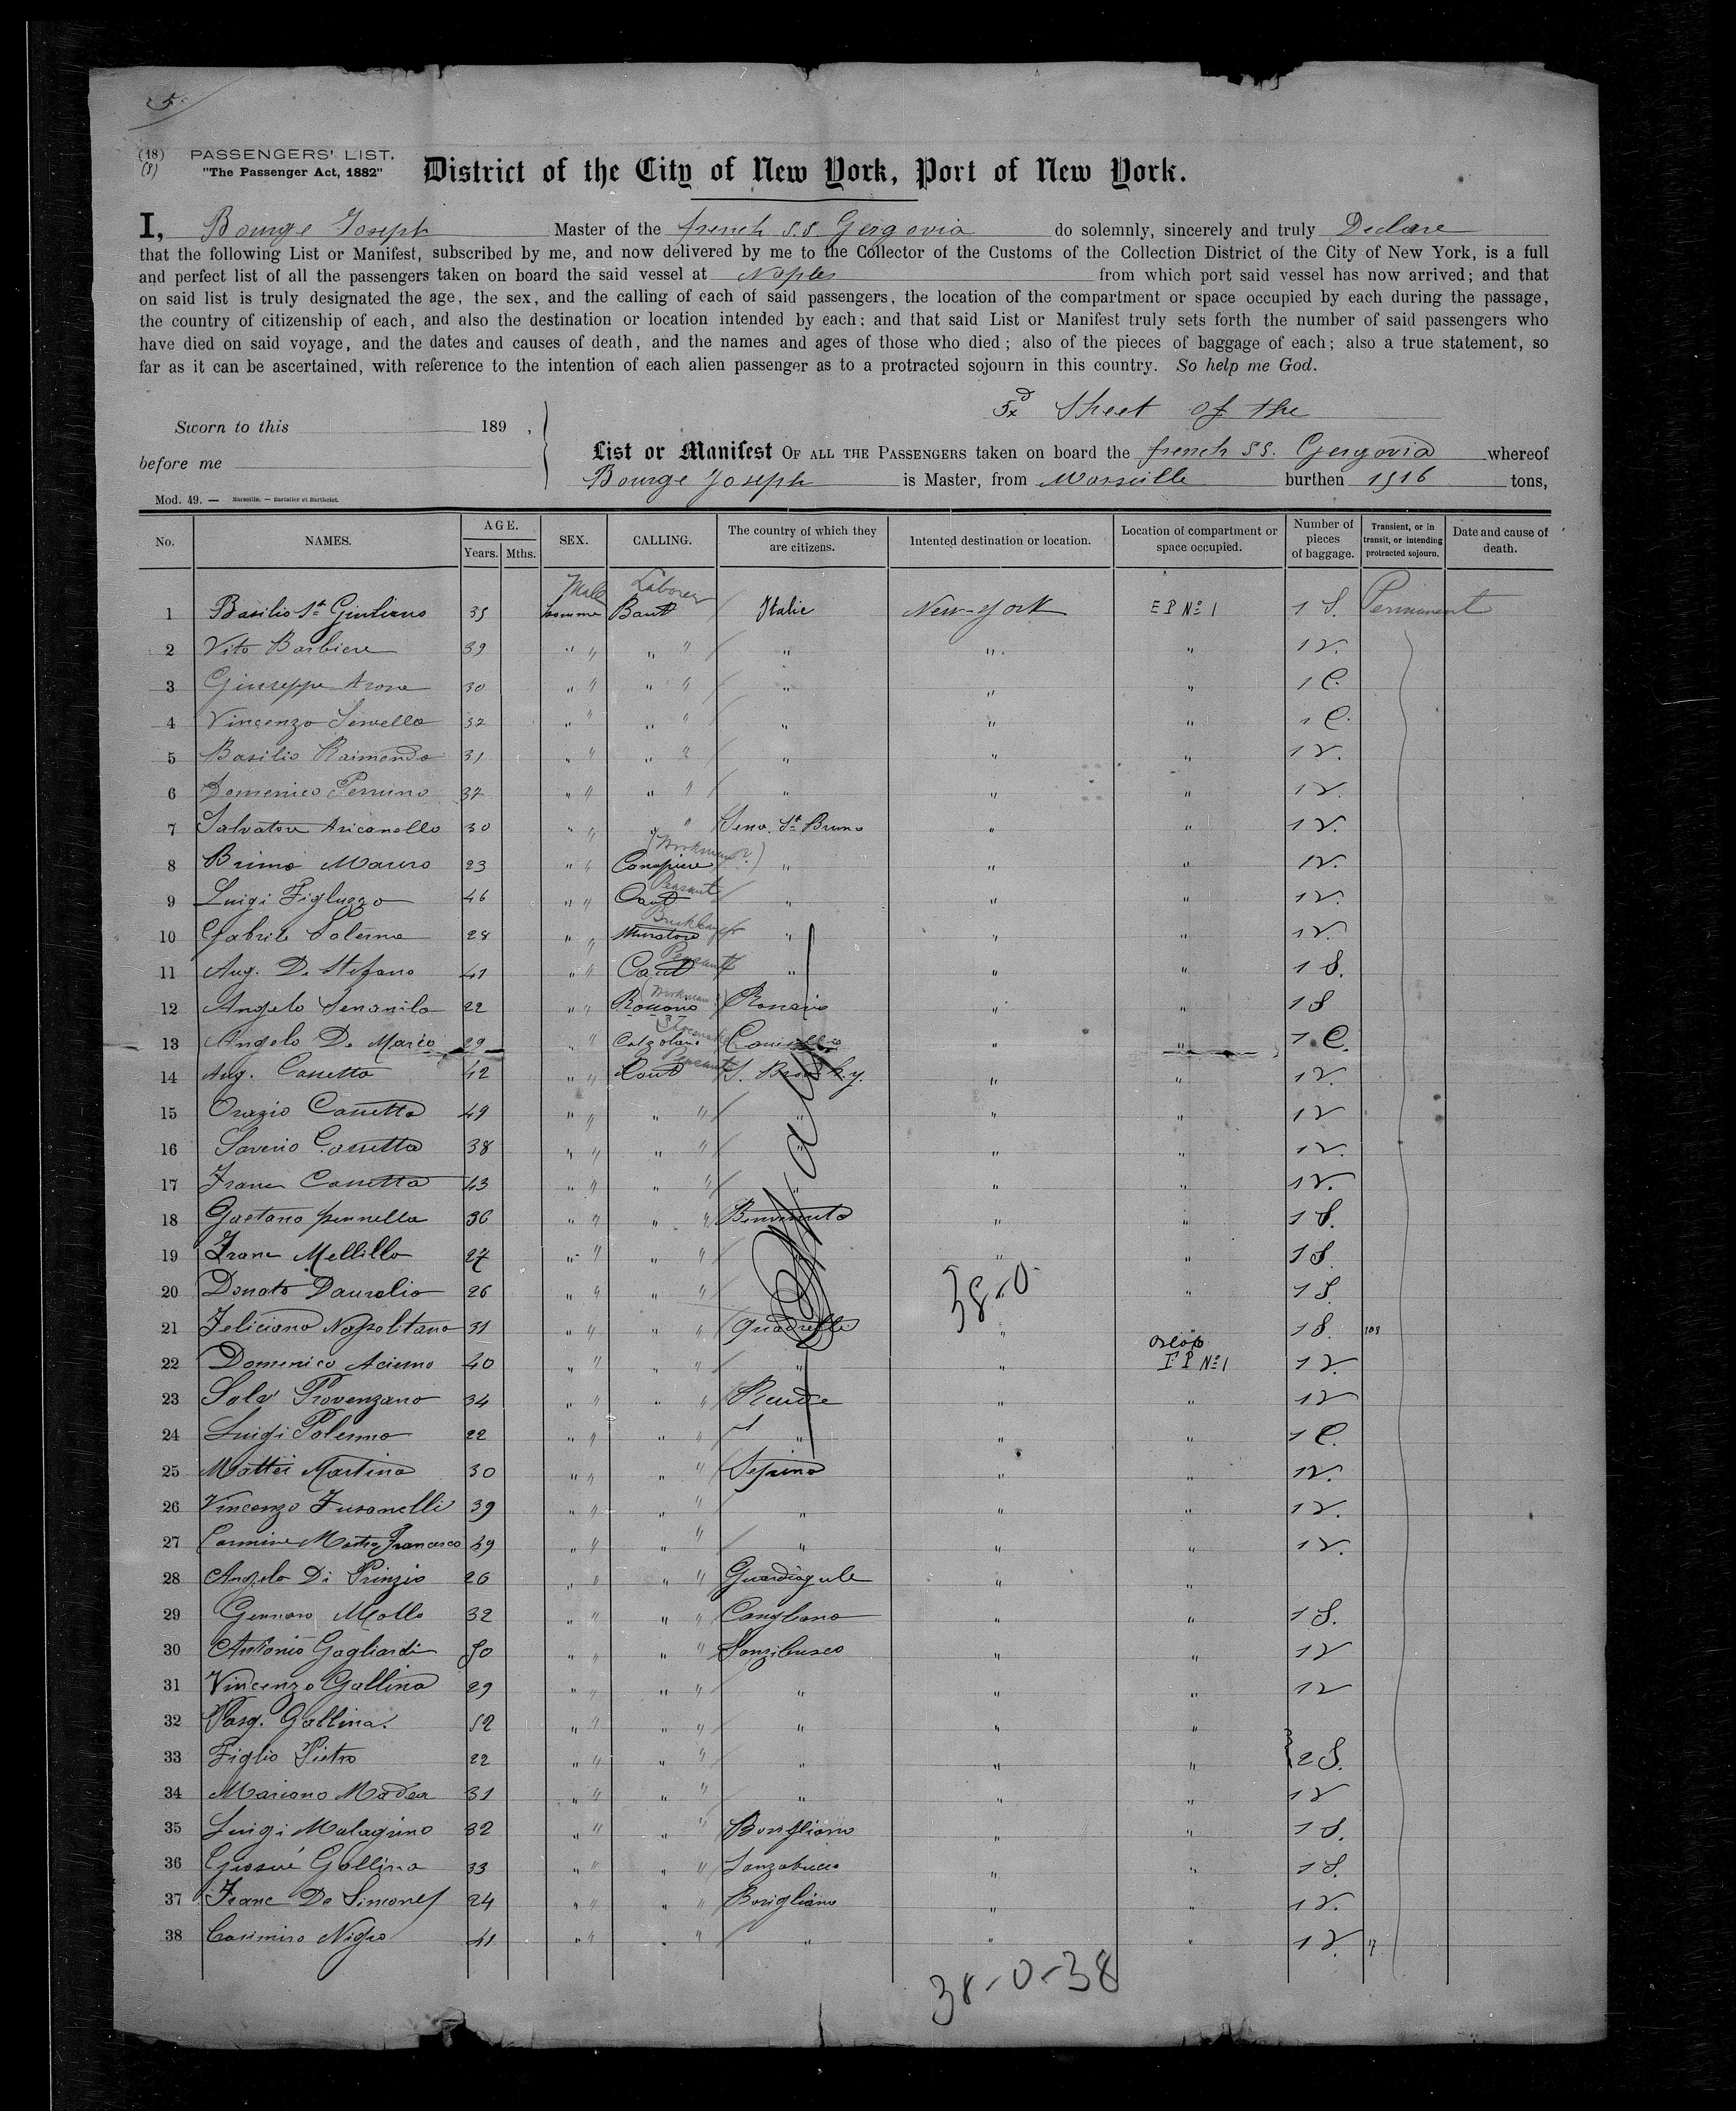 5
(18) PASSENGERS' LIST.
(8) "The Passenger Act, 1882"
District of the City of New York, Port of New York.
I, Bourge Joseph Master of the french S.S. Gergovia do solemnly, sincerely and truly Declare
that the following List or Manifest, subscribed by me, and now delivered by me to the Collector of the Customs of the Collection District of the City of New York, is a full
and perfect list of all the passengers taken on board the said vessel at Naples from which port said vessel has now arrived; and that
on said list is truly designated the age, the sex, and the calling of each of said passengers, the location of the compartment or space occupied by each during the passage,
the country of citizenship of each, and also the destination or location intended by each; and that said List or Manifest truly sets forth the number of said passengers who
have died on said voyage, and the dates and causes of death, and the names and ages of those who died; also of the pieces of baggage of each; also a true statement, so
far as it can be ascertained, with reference to the intention of each alien passenger as to a protracted sojourn in this country. So help me God.
Sheet of the
Sworn to this 189 ,
before me
List or Manifest OF ALL THE PASSENGERS taken on board the french SS. Gergovia whereof
Bourge Joseph is Master, from Marseille burthen 1916 tons,
Mod. 49. — Marseille. — Barlatier et Barthelet.
No. NAMES. AGE. Years. Mths. SEX. CALLING. The country of which they are citizens. Intented destination or location. Location of compartment or space occupied. Number of pieces of baggage. Transient, or in transit, or intending protracted sojourn. Date and cause of death.
Male Laborer
1 Basilio St Giuliano 35 homme Italie New-York E P No 1 1 S. Permanent
2 Vito Barbiere 39 " " " " " " " 1 V.
3 Giuseppe Arone 30 " " " " " " " 1 C.
4 Vincenzo 32 " " " " " " " 1 C.
5 Basilio Raimondo 31 " " " " " " " 1 V.
6 Domenico 37 " " " " " " " 1 V.
7 Salvatore 30 " " " " St Bruno " " 1 V.
(Workman?)
8 Bruno Mauro 23 " " " " " 1 V.
Peasant
9 Luigi Figliuzzo 46 " " Cont " " " 1 V.
Bricklayer
10 Gabriele Salerno 28 " " Muratore " " " 1 V.
Peasant
11 Aug. De Stefano 41 " " Cont " " " 1 S.
(Workman?)
12 Angelo 22 " " " " 1 S
Shoemaker
13 Angelo De Marco 29 " " Calzolaio " " 1 C.
Peasant
14 Aug. Cassetta 42 " " Cont " " 1 V.
15 Orazio Cassetta 49 " " " " " " " 1 V
16 Saverio Cassetta 38 " " " " " " 1 V.
17 Franc Cassetta 43 " " " " " " 1 V.
18 Gaetano Pennella 36 " " " " Benvenuto " " 1 S.
19 Franc Mellillo 27 " " " " " " 1 S.
20 Donato Daurelio 26 " " " " " 1 S.
38-0
21 Feliciano Napolitano 31 " " " " Quadrelle " " 1 S.
Orlop
22 Domenico Acierno 40 " " " " " " E P No 1 1 V
23 Salv Provenzano 34 " " " " Rende " " 1 V
24 Luigi Palermo 22 " " " " " " " 1 C.
25 Mattei Martino 30 " " " " Sepino " " 1 V.
26 Vincenzo Fusanelli 39 " " " " " " 1 V.
27 Carmine Mastro Francesco 49 " " " " " " " 1 V.
28 Angelo Di Prinzio 26 " " " " " "
29 Gennaro Mollo 32 " " " " " " 1 S.
30 Antonio Gagliardi 50 " " " " " 1 V
31 Vincenzo Gallina 29 " " " " " " " 1 V
32 Pasq. Gallina. 52 " " " " " " "
33 Figlio Pietro 22 " " " " " " " 2 S.
34 Mariano 31 " " " " " " " 1 V
35 Luigi 32 " " " " " " 1 S.
36 Giosué Gallina 33 " " " " " " 1 S.
37 Franc De Simone 24 " " " " " " 1 V.
38 Casimiro Nigro 41 " " " " " " " 1 V.
38-0-38